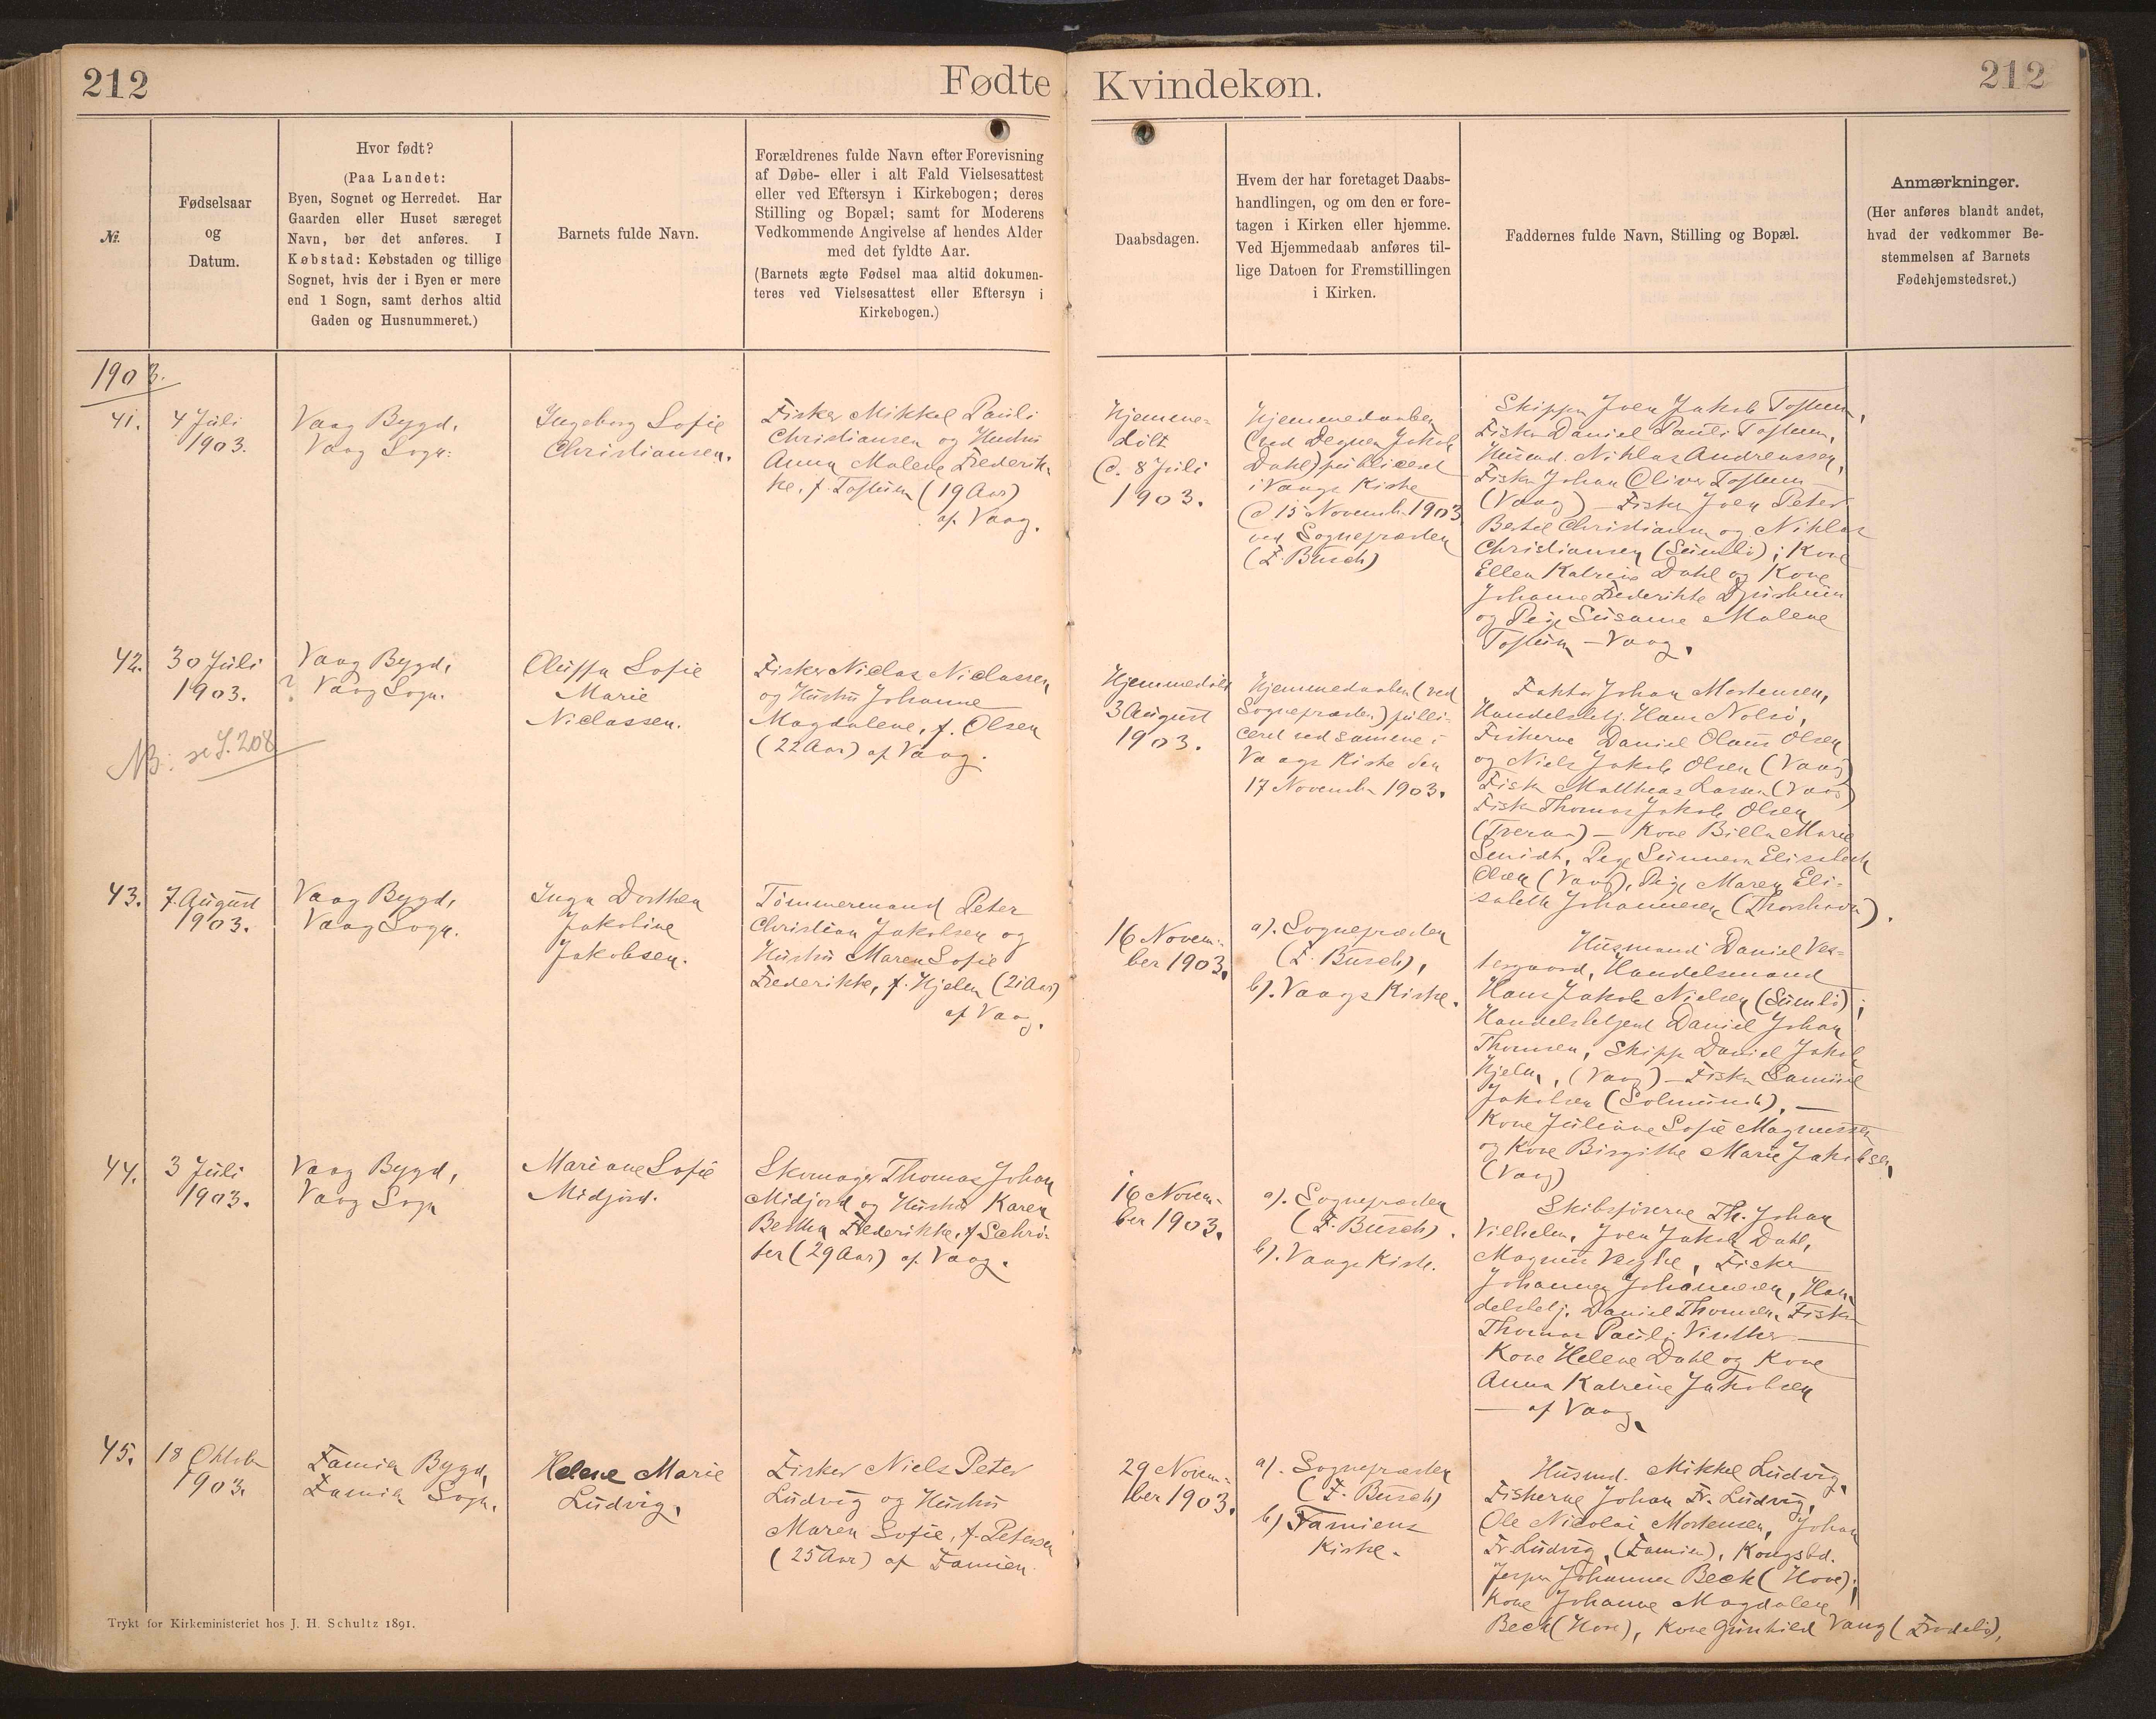 212
Fødte
Kvindekøn.
212
№.
Fødselsaar
og
Datum.
Hvor født?
(Paa Landet:
Byen, Sognet og Herredet. Har
Gaarden eller Huset særeget
Navn, bør det anføres. I
Købstad: Købstaden og tillige
Sognet, hvis der i Byen er mere
end 1 Sogn, samt derhos altid
Gaden og Husnummeret.)
Barnets fulde Navn.
Forældrenes fulde Navn efter Forevisning
af Døbe- eller i alt Fald Vielsesattest
eller ved Eftersyn i Kirkebogen; deres
Stilling og Bopæl; samt for Moderens
Vedkommende Angivelse af hendes Alder
med det fyldte Aar.
(Barnets ægte Fødsel maa altid dokumen-
teres ved Vielsesattest eller Eftersyn i
Kirkebogen.)
Daabsdagen.
Hvem der har foretaget Daabs-
handlingen, og om den er fore-
tagen i Kirken eller hjemme.
Ved Hjemmedaab anføres til-
lige Datoen for Fremstillingen
i Kirken.
Faddernes fulde Navn, Stilling og Bopæl.
Anmærkninger.
(Her anføres blandt andet,
hvad der vedkommer Be-
stemmelsen af Barnets
Fødehjemstedsret.)
1903.
41.
4 Juli
1903.
Vaag Bygd,
Vaag Sogn.
Ingeborg Sofie
Christiansen.
Fisker Mikkel Pauli
Christiansen og Hustru
Anna Malene Frederik-
ke, f. Tofteim (19 Aar)
af Vaag.
Hjemme-
døbt
d. 8 Juli
1903.
Hjemmedaaben
(ved Degnen Jakob
Dahl) publiceret
i Vaags Kirke
d 15 November 1903
ved Sognepræsten
(F. Busch)
Skipper Joen Jakob
Fisker Daniel Pauli
Husmd. Niklas Andreassen,
Fisker Johan Oliver
(Vaag) – Fisker Joen Peter
Bertel Christiansen og Niklas
Christiansen (Sumbø); Kone
Ellen Katrine Dahl og Kone
Johanne Frederikke
og Pige Susanne Malene
– Vaag.
42.
30 Juli
1903.
Vaag Bygd,
? Vaag Sogn.
NB. se S. 208
Oluffa Sofie
Marie
Niclassen.
Fisker Niclas Niclassen
og Hustru Johanne
Magdalene, f. Olsen
(22 Aar) af Vaag.
Hjemmedøbt
3 August
1903.
Hjemmedaaben (ved
Sognepræsten) publi-
ceret ved samme i
Vaags Kirke den
17 November 1903.
Faktor Johan Mortensen,
Handelsbetj. Hans Nolsø,
Fiskerne Daniel Olaus Olsen
og Niels Jakob Olsen (Vaag)
Fisker Matthias Larsen (Vaag)
Fisker Thomas Jakob Olsen
(Trerne) – Kone Billa Marie
Smidt, Pige Sunneva Elisabeth
Olsen (Vaag), Pige Maren Eli-
sabeth Johannesen (Thorshavn).
43.
7. August
1903.
Vaag Bygd,
Vaag Sogn.
Inga Dorthea
Jakobine
Jakobsen.
Tømmermand Peter
Christian Jakobsen og
Hustru Maren Sofie
Frederikke, f. Hjelm (21 Aar)
af Vaag.
16 Novem-
ber 1903.
a). Sognepræsten
(F. Busch),
b). Vaags Kirke.
Husmand Daniel Ves-
tergaard, Handelsmand
Hans Jakob Nielsen (Sumbø);
Handelsbetjent Daniel Johan
Thomsen, Skipper Daniel Jakob
Hjelm, (Vaag) – Fisker Samuel
Jakobsen (Solmunde). –
Kone Juliane Sofie Magnussen
og Kone Birgithe Marie Jakobsen,
(Vaag)
44.
3 Juli
1903.
Vaag Bygd,
Vaag Sogn
Mariane Sofie
Midjord.
Skomager Thomas Johan
Midjord og Hustru Karen
Bertha Frederikke, f Schrø-
ter (29 Aar) af Vaag.
16 Novem-
ber 1903.
a). Sognepræsten
(F. Busch).
b). Vaags Kirke.
Skibsførerne Th. Johan
Vilhelm, Joen Jakob Dahl,
Magnus Fisker
Johannes Johannesen, Han-
delsbetj. Daniel Thomsen, Fisker
Thomas Pauli Vinther –
Kone Helene Dahl og Kone
Anna Katrine Jakobsen
– af Vaag.
45.
18 Oktober
1903.
Famien Bygd,
Famien Sogn.
Helene Marie
Ludvig.
Fisker Niels Peter
Ludvig og Hustru
Maren Sofie, f. Petersen
(25 Aar) af Famien.
29 Novem-
ber 1903.
a). Sognepræsten
(F. Busch)
b) Famiens
Kirke.
Husmd. Mikkel Ludvig,
Fiskerne Johan Fr. Ludvig,
Ole Nicolai Mortensen, Johan
Fr. Ludvig, (Famien), Kongsbd.
Jesper Johannes Beck (Hove);
Kone Johanne Magdalene
Beck (Hove), Kone Gunhild Vang (Frodebø).
Trykt for Kirkeministeriet hos J. H. Schultz 1891.